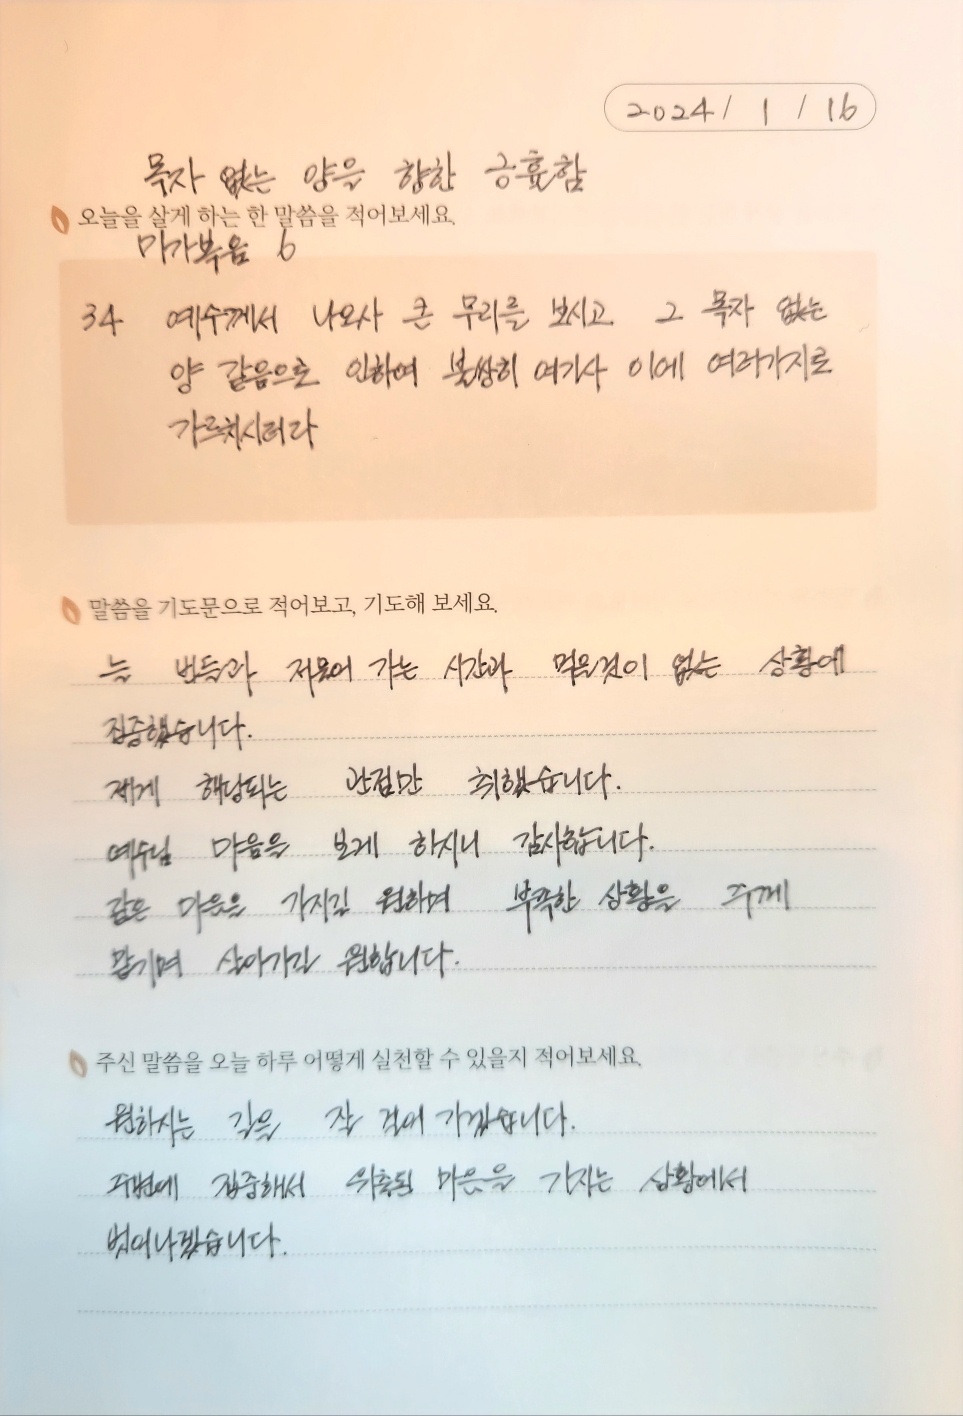 2024 / 1 / 16
목자 없는 양을 향한 긍휼함
오늘을 살게 하는 한 말씀을 적어보세요.
마가복음 6
34 예수께서 나오사 큰 무리를 보시고 그 목자 없는
양 같음으로 인하여 불쌍히 여기사 이에 여러가지로
가르치시더라
말씀을 기도문으로 적어보고, 기도해 보세요.
늘 빈들과 저물어 가는 시간과 먹을것이 없는 상황에
집중했습니다.
제게 해당되는 관점만 취했습니다.
예수님 마음을 보게 하시니 감사합니다.
같은 마음을 가지길 원하며 부족한 상황을 주께
맡기며 살아가길 원합니다.
주신 말씀을 오늘 하루 어떻게 실천할 수 있을지 적어보세요.
원하시는 길을 잘 걸어 가겠습니다.
주변에 집중해서 위축된 마음을 가지는 상황에서
벗어나겠습니다.